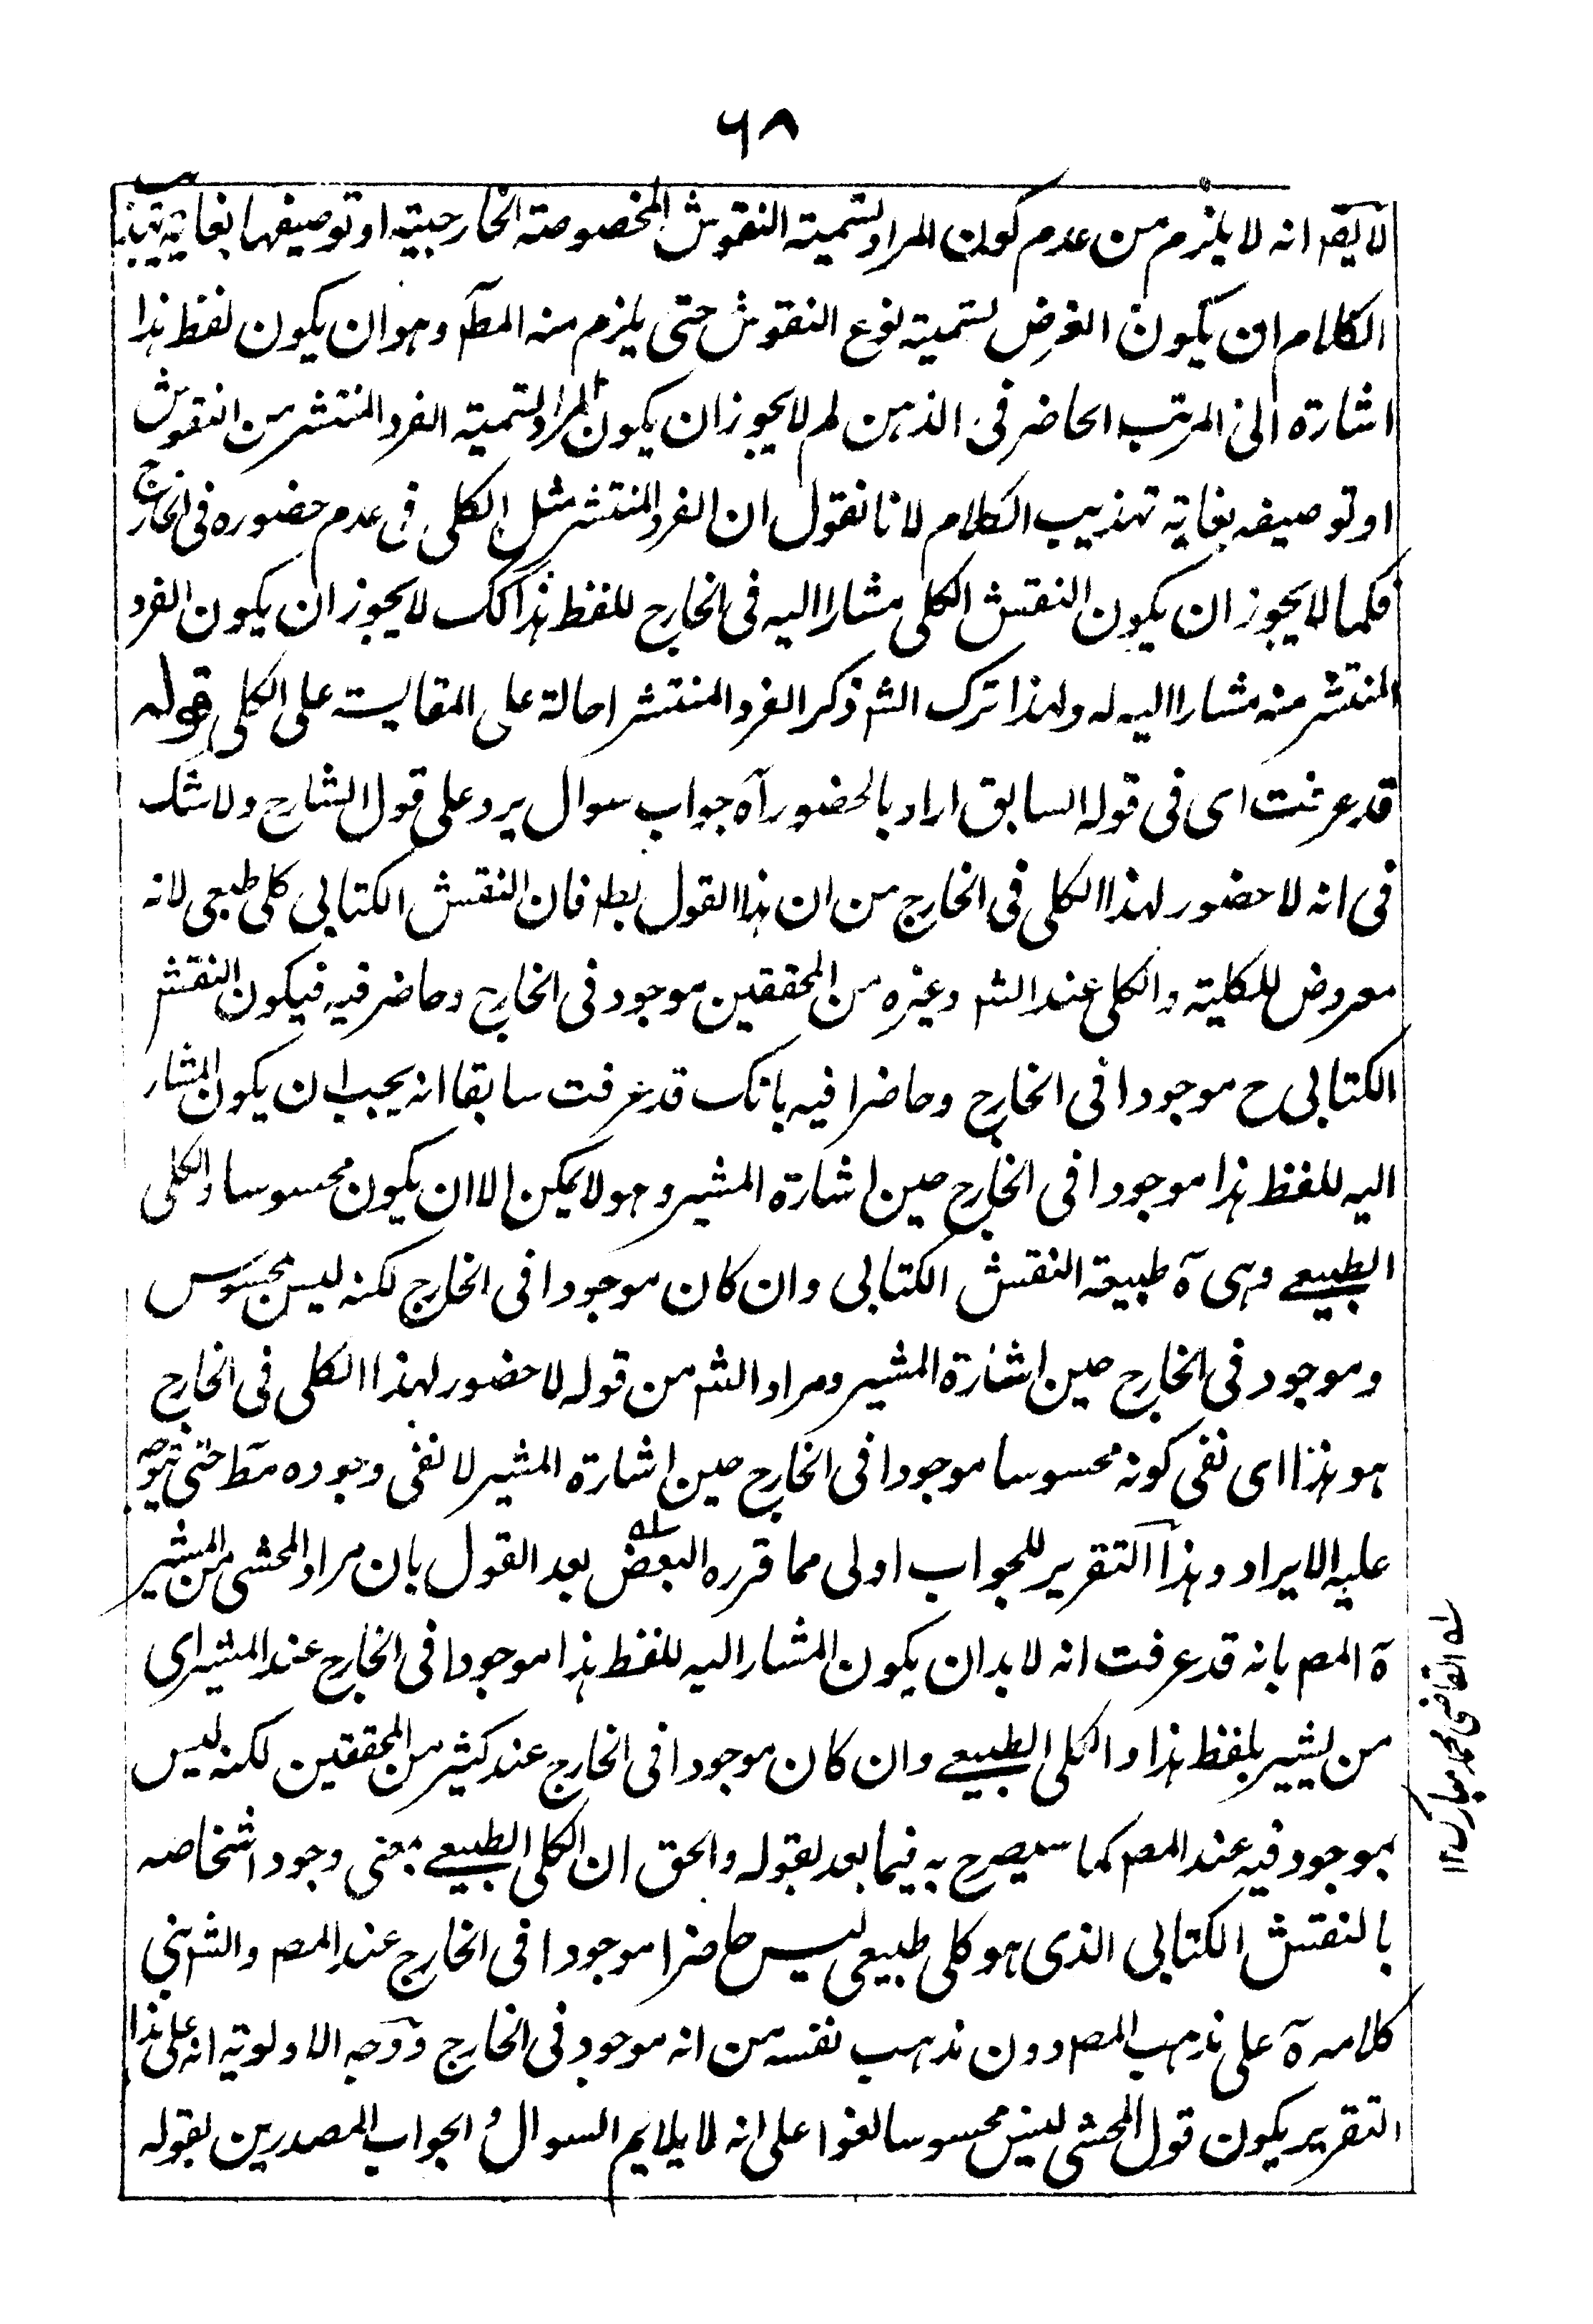 ٦٨
لا يقر انه لا يلزم من عدم كون المراد تسمية النقوش المخصوصة الخارجية او توصيفها بغاية تهذيب
الكلام ان يكون الغرض تسمية نوع النقوش حتى يلزم منه المطر وهو ان يكون لفظ هذا
اشارة الى المرتب الحاضر فى الذهن لم لا يجوز ان يكون المراد تسمية الفرد المنتشر من النقوش
او توصيفه بغاية تهذيب الكلام لانا نقول ان الفرد المنتشر مثل الكلى فى عدم حضوره فى الخارج
فكما لا يجوز ان يكون النقش الكلى مشارا اليه فى الخارج للفظ هذا كك لا يجوز ان يكون الفرد
المنتشر منه مشارا اليه له ولهذا ترك الشر ذكر الفرد المنتشر احالة على المقايسة على الكلى قوله
قد عرفت اى فى قوله السابق اراد بالحضور آه جواب سوال يرد على قول الشارح ولا شك
فى انه لا حضور لهذا الكلى فى الخارج من ان هذا القول بطر فان النقش الكتابى كلى طبعى لانه
معروض للكلية والكلى عند الشر وغيره من المحققين موجود فى الخارج وحاضر فيه فيكون النقش
الكتابى ح موجودا فى الخارج وحاضرا فيه بانك قد عرفت سابقا انه يجب ان يكون المشار
اليه للفظ هذا موجودا فى الخارج حين اشارة المشير وهو لا يمكن الا ان يكون محسوسا والكلى
الطبيعے وهى آه طبيعة النقش الكتابى وان كان موجودا فى الخارج لكنه ليس بمحسوس
وموجود فى الخارج حين اشارة المشير ومراد الشر من قوله لا حضور لهذا الكلى فى الخارج
هو هذا اى نفى كونه محسوسا موجودا فى الخارج حين اشارة المشير لا نفى وجوده مط حتى يتوجه
عليه الايراد وهذا التقرير للجواب اولى مما قرره البعض سله بعد القول بان مراد المحشى من المشير
آه المصر بانه قد عرفت انه لا بد ان يكون المشار اليه للفظ هذا موجودا فى الخارج عند المشير اى
من يشير بلفظ هذا والكلى الطبيعے وان كان موجودا فى الخارج عند كثير من المحققين لكنه ليس
بموجود فيه عند المصر كما سيصرح به فيما بعد بقوله والحق ان الكلى الطبيعے بمعنى وجود اشخاصه
بالنقش الكتابى الذى هو كلى طبيعى ليس حاضرا موجودا فى الخارج عند المصر والشر بنى
كلامه آه على مذهب المصر دون مذهب نفسه من انه موجود فى الخارج ووجه الاولوية انه على هذا
التقرير يكون قول المحشى ليس محسوسا لغوا على انه لا يلايم السوال و الجواب المصدرين بقوله
سله القاضى محمد مبارك ١٢